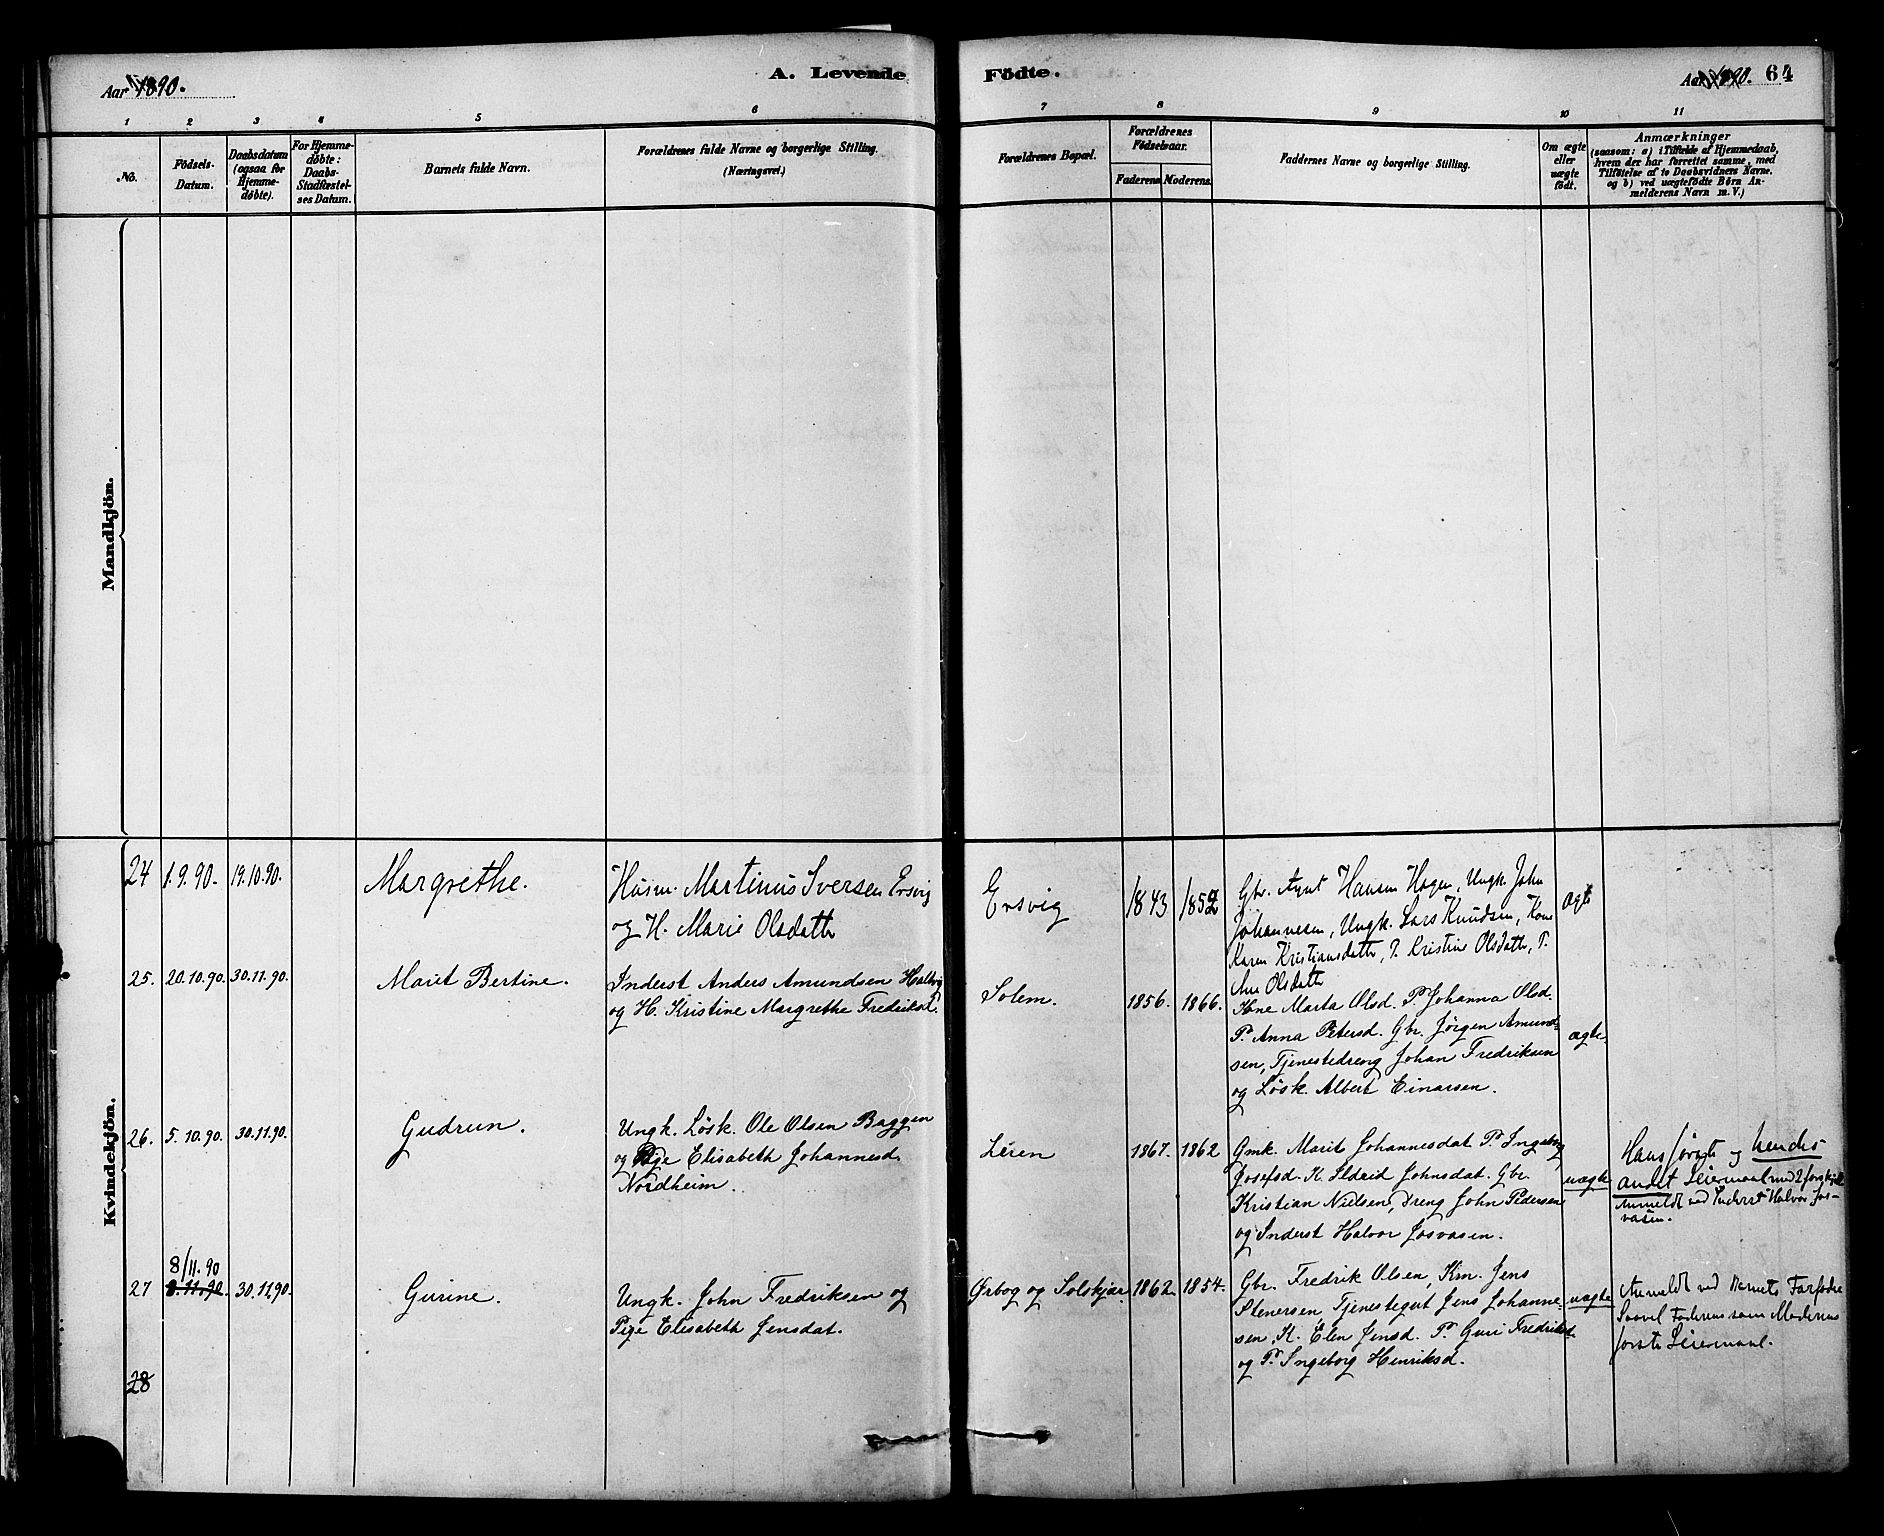 Aar 1890.
A. Levende
Födte.
Aar 1890. 64
1 2 3 4 5 6 7 8 9 10 11
No.
Födsels-
Datum.
Daabsdatum
(ogsaa for
Hjemme-
døbte).
For Hjemme-
døbte:
Daabs-
Stadfæstel-
ses Datum.
Barnets fulde Navn.
Forældrenes fulde Navne og borgerlige Stilling.
(Næringsvei.)
Forældrenes Bopæl.
Forældrenes
Fødselsaar.
Faderens
Moderens.
Faddernes Navne og borgerlige Stilling.
Om ægte
eller
uægte
født.
Anmærkninger
(saasom: a) i Tilfælde af Hjemmedaab,
hvem der har forrettet samme, med
Tilføielse af to Daabsvidners Navne.
og b) ved uægtefødte Børn An-
melderens Navn m. V.)
Mandkjön.
Kvindekjön.
24 1.9.90. 19.10.90. Margrethe.
Husm. Martinus Iversen Ersvig
og H. Marie Olsdatte
Ersvig 1843 1852
Gbr. Hansen Hagen, Ungk. John
Johannesen, Ungk. Lars Knudsen, Kone
Karen Kristiansdatte, P. Kristine Olsdatte, P.
Ane Olsdatte
ægte
25. 20.10.90. 30.11.90. Marit Bertine.
Inderst Anders Amundsen
og H. Kristine Margrethe Fredriksd.
Solem. 1856. 1866.
Kone Marta Olsd. P. Johanna Olsd.
P. Anna Petersd. Gbr. Jørgen Amund-
sen, Tjenestedreng Johan Fredriksen
og Løsk. Albert Einarsen.
ægte
26. 5.10.90. 30.11.90. Gudrun.
Ungk. Løsk. Ole Olsen Baggen
og Pige Elisabeth Johannesd.
Nordheim.
Leren 1867. 1862
Gmk. Marit Johannesdat P. Ingeborg
Josefsd. K. Ildrid Johnsdat. Gbr.
Kristian Nielsen, Dreng John Pedersen
og Inderst Halvor Josvasen.
uægte
Hans første og hendes
andet Leiermaal med 2 forskjell
Anmeldt ved Inderst Halvor Jos-
vasen.
8/11.90
27 8.11.90. 30.11.90. Gurine.
Ungk. John Fredriksen og
Pige Elisabeth Jensdat.
Ørbog og Solskjær 1862 1854.
Gbr. Fredrik Olsen, Km. Jens
Stenersen, Tjenestegut Jens Johanne-
sen, K. Elen Jensd. P. Guri Fredriksd.
og P. Ingeborg Henriksd.
uægte
Anmeldt ved Barnets Farfader
Saavel Faderens som Moderens
første Leiermaal.
28